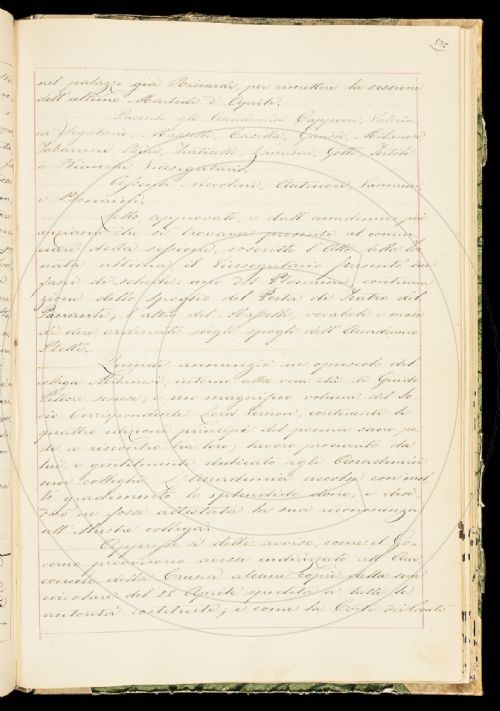 575
nel palazzo già Riccardi, per rimettere la sessione
dell'ultimo Martedì d'Aprile.
Presenti gli Accademici Capponi, Valeria
ni Segretario, Masselli, Casella, Milanesi
Tabarrini, Bianchi, Fraticelli, Gotti, Tortoli
e Vicesegretario.
Assenti Niccolini, Vannucci,
e
Letto, approvato, e dall'accademico più
anziano che si trovava presente al comin
ciare della sessione, soscritto l'Atto della tor
nata ultima, il Vicesegretario presentò due
fasci di schede: uno del continua
zione dello spoglio del Porta da Teatro del
; l'altro del Masselli, vocaboli e modi
di dire ordinati sugli spogli dell'Accademico
Quindi annunziò un opuscolo del
collega Milanesi, intorno alla vera età di Guido
Pittore senese, e un magnifico volume del So
cio Corrispondente Lord Vernon, contenente le
quattro edizioni principi del poema sacro po
ste a riscontro fra loro; lavoro procurato da
lui, e gentilmente dedicato agli Accademici
suoi colleghi. L'Accademia accolse con mol
to gradimento lo splendido dono, e desi
derò ne fosse attestata la sua riconoscenza
all'illustre collega.
Appresso si dette avviso, come il Go
verno provvisorio avesse indirizzato all'Arci
consolo della Crusca alcune copie della sua
circolare del 28 Aprile spedita a tutte le
autorità costituite; e come la Corte dei Conti